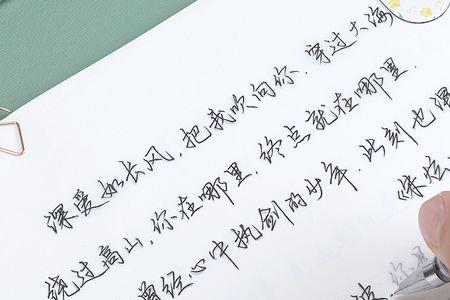 深爱如长风，把我吹向你．穿过大海
绕过高山，你在哪里，终点就在哪里．
曾经心中执剑的少年．此刻也混